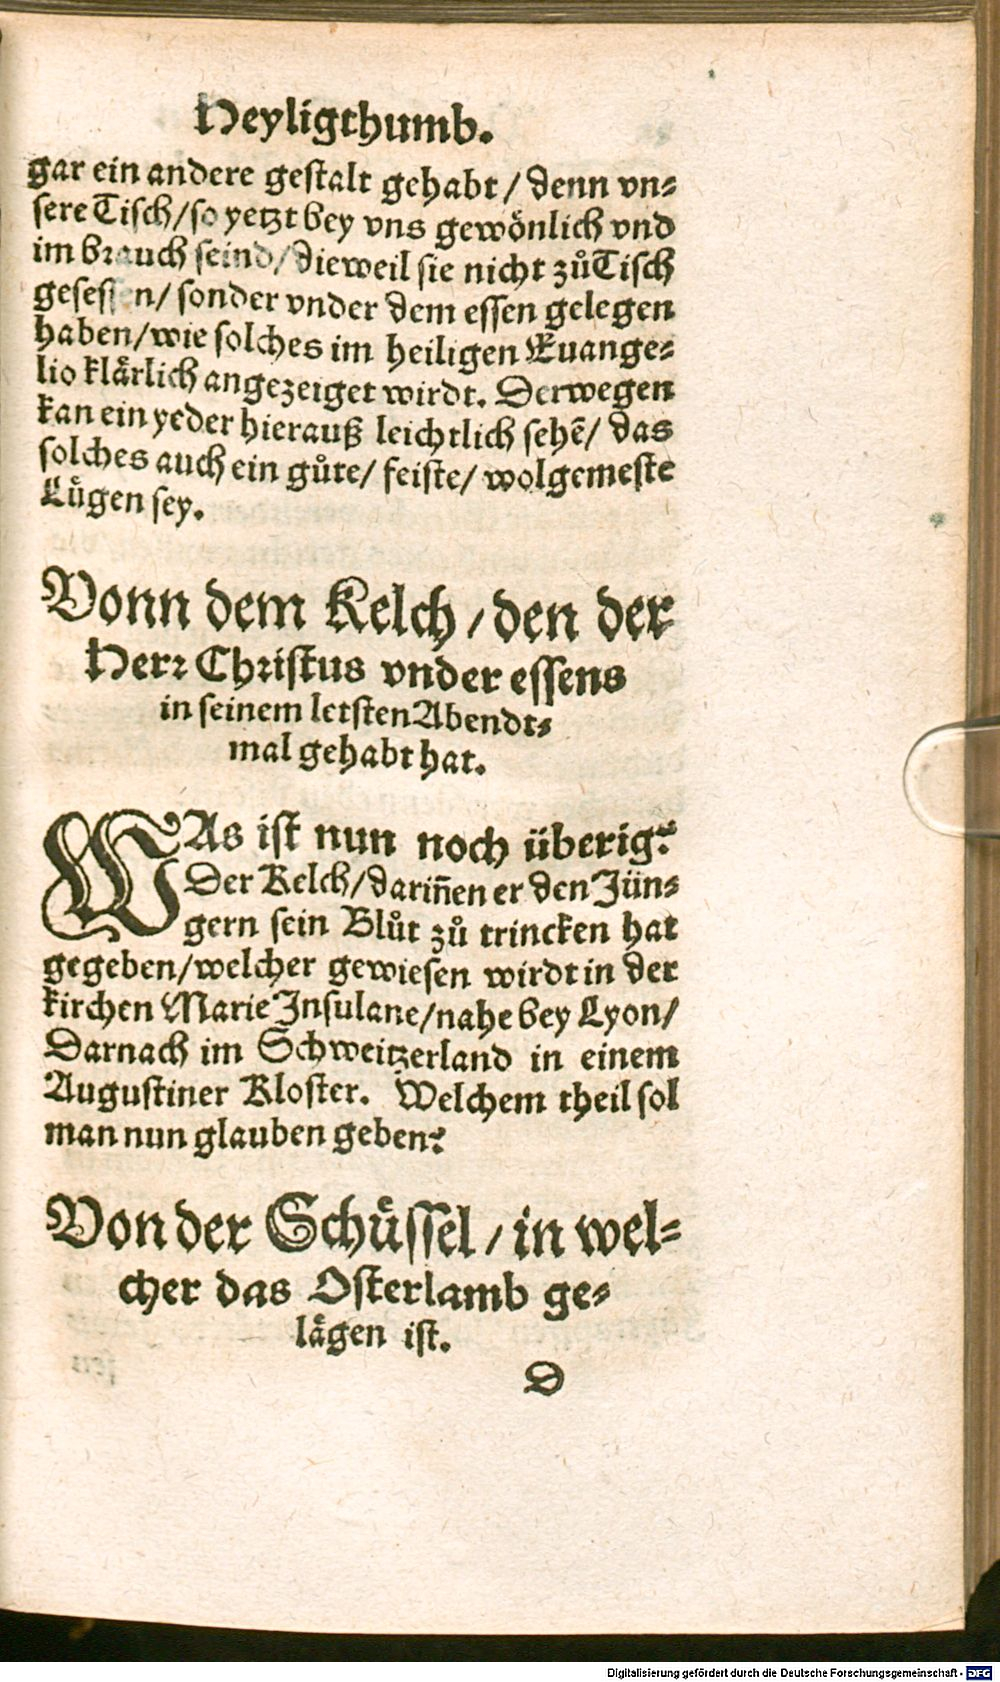 Heyligthumb.
gar ein andere gestalt gehabt / denn vn⸗
sere Tisch / so yetzt bey vns gewönlich vnd
im brauch seind / dieweil sie nicht zů Tisch
gesessen / sonder vnder dem essen gelegen
haben / wie solches im heiligen Euange⸗
lio klårlich angezeiget wirdt. Derwegen
kan ein yeder hierauß leichtlich sehē / das
solches auch ein gůte / feiste / wolgemeste
Lügen sey.
Vonn dem Kelch / den der
Herr Christus vnder essens
in seinem letsten Abendt⸗
mal gehabt hat.
WAs ist nun noch überig?
Der Kelch / dariñen er den Jün⸗
gern sein Blůt zů trincken hat
gegeben / welcher gewiesen wirdt in der
kirchen Marie Insulane / nahe bey Lyon /
Darnach im Schweitzerland in einem
Augustiner Kloster. Welchem theil sol
man nun glauben geben?
Von der Schüssel / in wel⸗
cher das Osterlamb ge⸗
lågen ist.
D
Digitalisierung gefördert durch die Deutsche Forschungsgemeinschaft - DFG